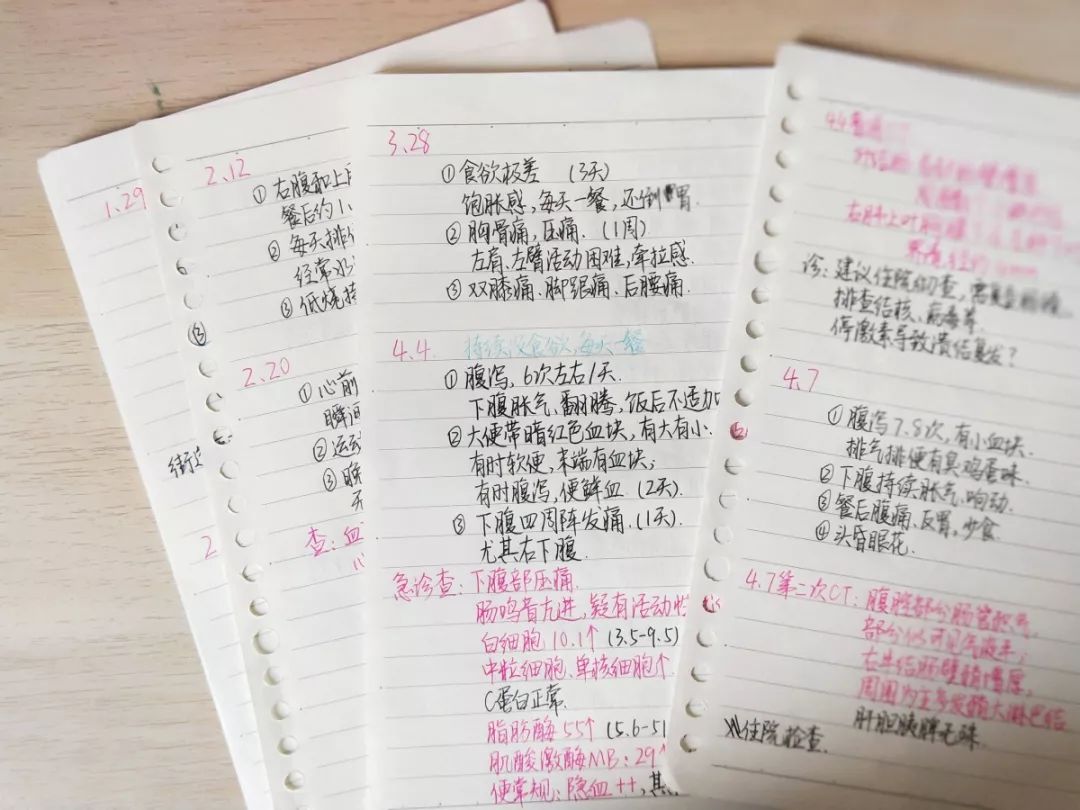 1.29
2
2.12
① 右腹和上
餐后约1.
② 每天排
经常水
③ 低烧持
③
2.20
① 心前
瞬
② 运动
③ 晚
查:血
心
3.28
① 食欲极差 (3天)
饱胀感,每天一餐,还倒胃.
② 胸骨痛,压痛.(1周)
左肩、左臂活动困难,牵拉感.
③ 双膝痛、脚跟痛、后腰痛.
4.4. 持续没食欲,每天一餐
① 腹泻,6次左右1天.
下腹胀气、翻腾,饭后不适加
② 大便带暗红色血块,有大有小.
有时软便,末端有血块;
有时腹泻,便鲜血.(2天).
③ 下腹四周阵发痛.(1天).
尤其右下腹.
急诊查:下腹部压痛.
肠鸣音亢进,疑有活动性
白细胞 10.1↑ (3.5-9.5)
中粒细胞、单核细胞↑
C蛋白正常.
脂肪酶 55↑ (5.6-51
肌酸激酶MB:29↑
便常规:隐血++,其
4.4
右肺上叶
诊:建议住院
排查结核、病毒等.
停激素导致溃结复发?
4.7
① 腹泻7.8次,有小血块.
排气排便有臭鸡蛋味.
② 下腹持续胀气、响动.
③ 餐后腹痛、反胃,少食.
④ 头昏眼花.
4.7第二次CT:腹腔部分肠管积气,
部分似可见气液平;
右半结肠壁稍增厚,
周围为主多发稍大淋巴结
肝胆胰脾无殊.
住院检查.